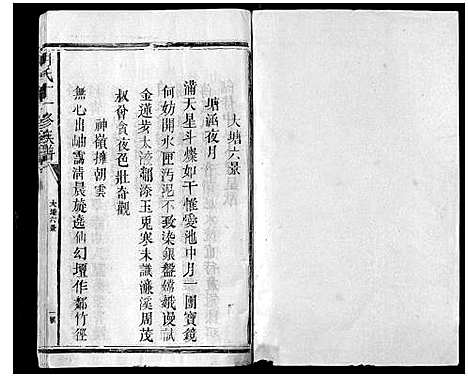 大塘六景
塘涵夜月
滿天星斗燦如干惟愛池中月一團寶鏡
何妨開水匣汚泥不致染銀盤嫦娥謾試
金蓮步太液翻漾玉兎寒未識濂溪周茂
叔曾貪夜色壯奇觀
神嶺擁朝雲
無心出岫靄清晨旋遶仙幻壇作鄰竹徑
氏十一修族譜
大塘六景
一